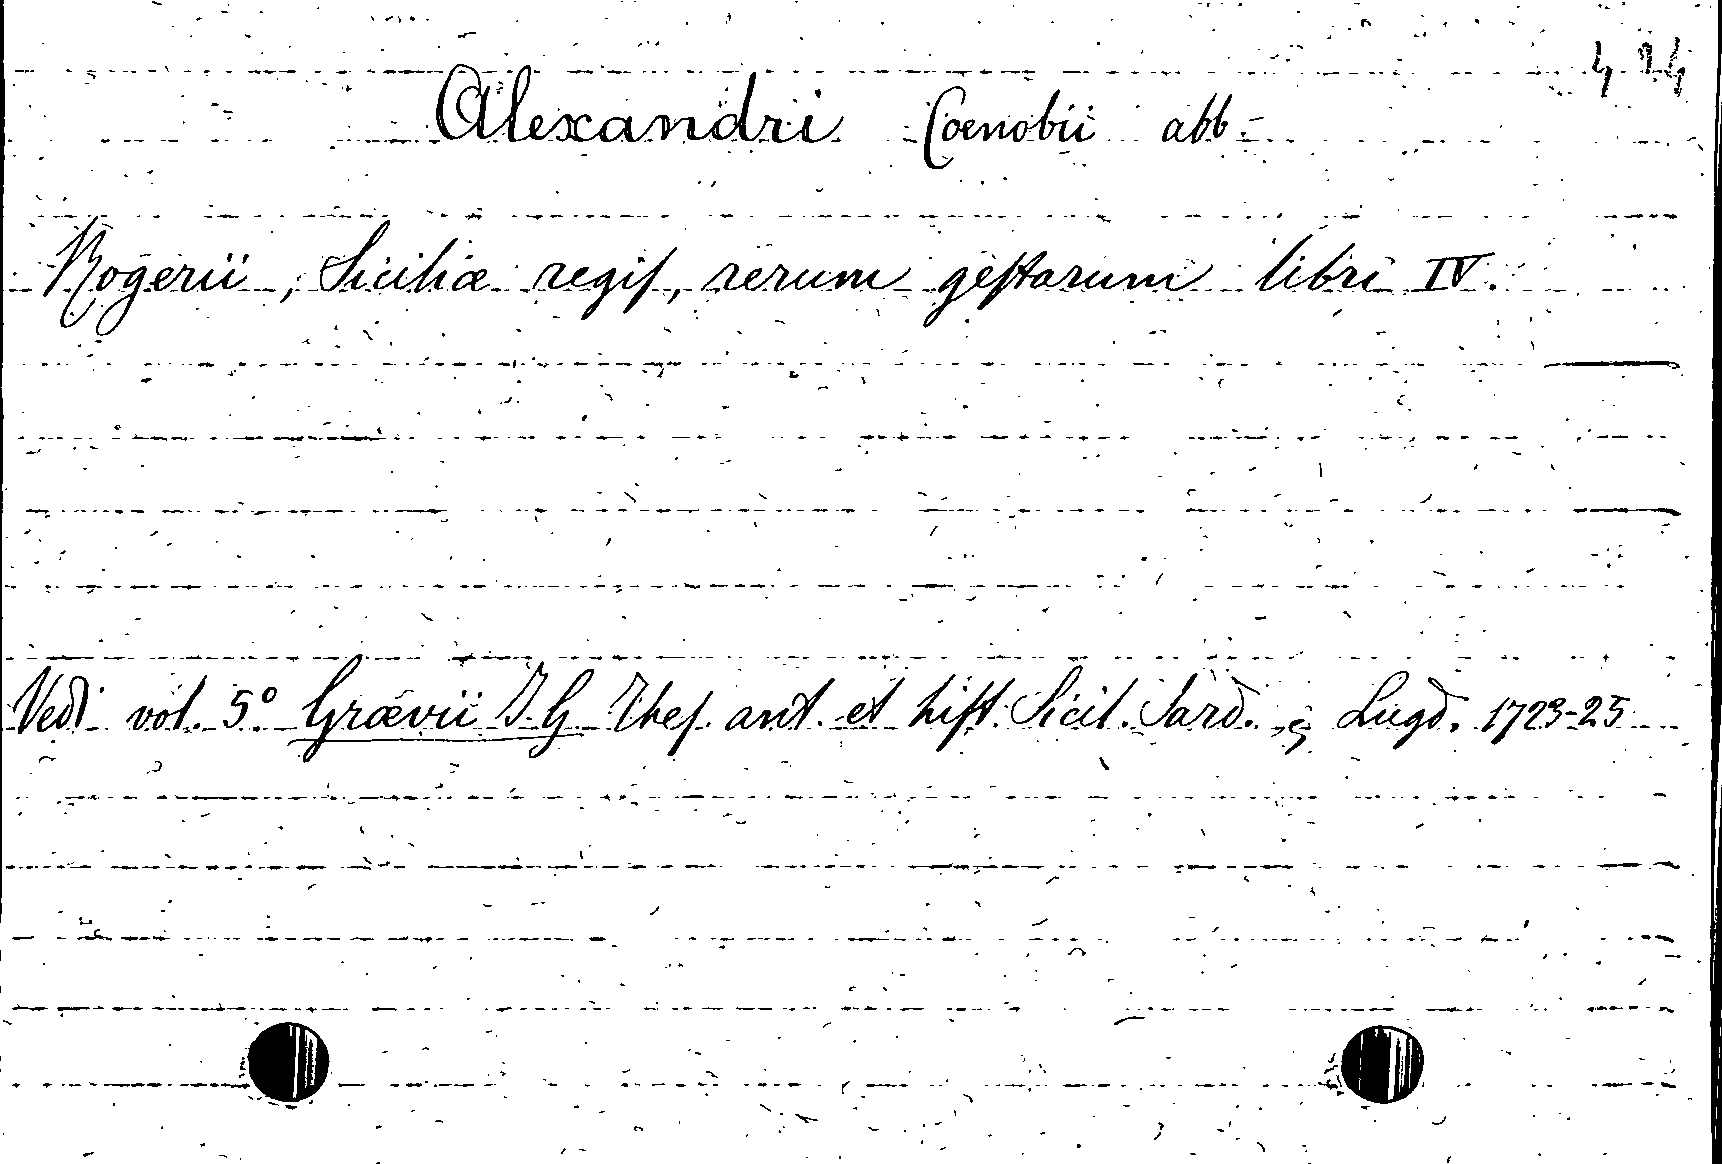 424
Alexandri Coenobii abb-
Rogerii, Siciliæ regiſ, rerum geſtarum libri IV.
Vedi vol. 5º Grævii J. G. Theſ. ant. et hiſt. Sicil. Sard. Lugd. 1723-25